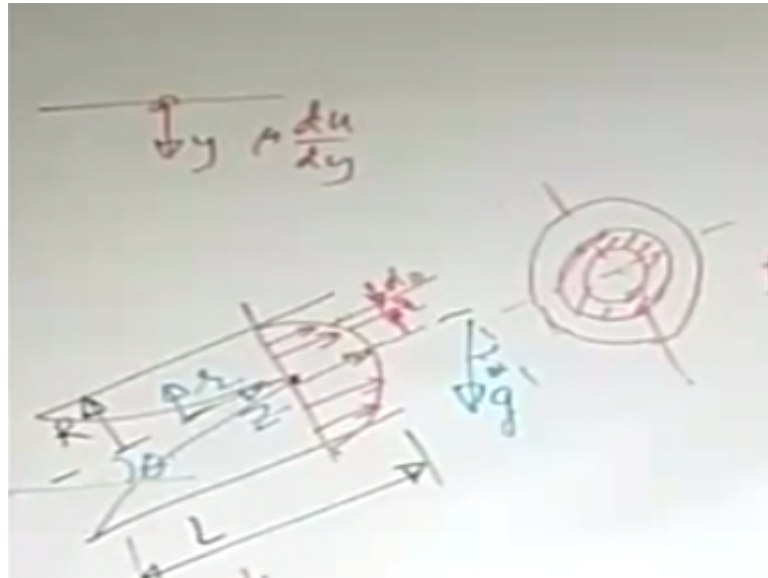 y μ du/dy
r
R
z
θ
g
L